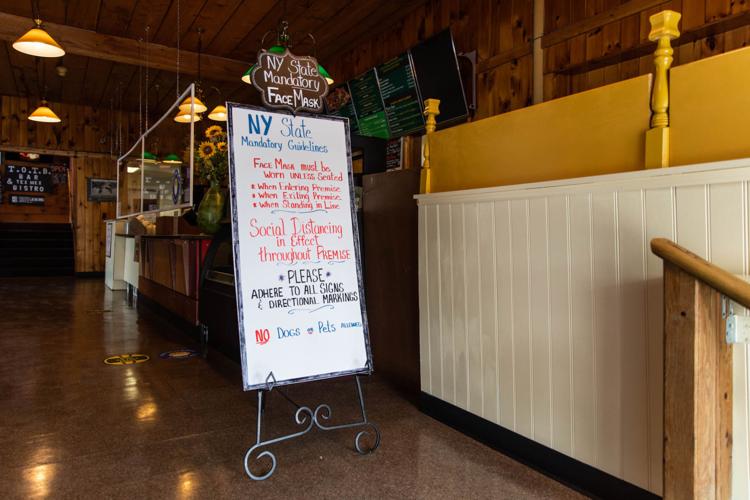 NY State
Mandatory
Face Mask
NY State
Mandatory Guidelines
Face Mask must be
Worn unless Seated
* When Entering Premise
* When Exiting Premise
* When Standing in Line
Social Distancing
in Effect
throughout Premise
* PLEASE *
ADHERE TO ALL SIGNS
& DIRECTIONAL MARKINGS
NO Dogs or Pets Allowed
T.O.T.B.
BAR
& TEX MEX
BISTRO